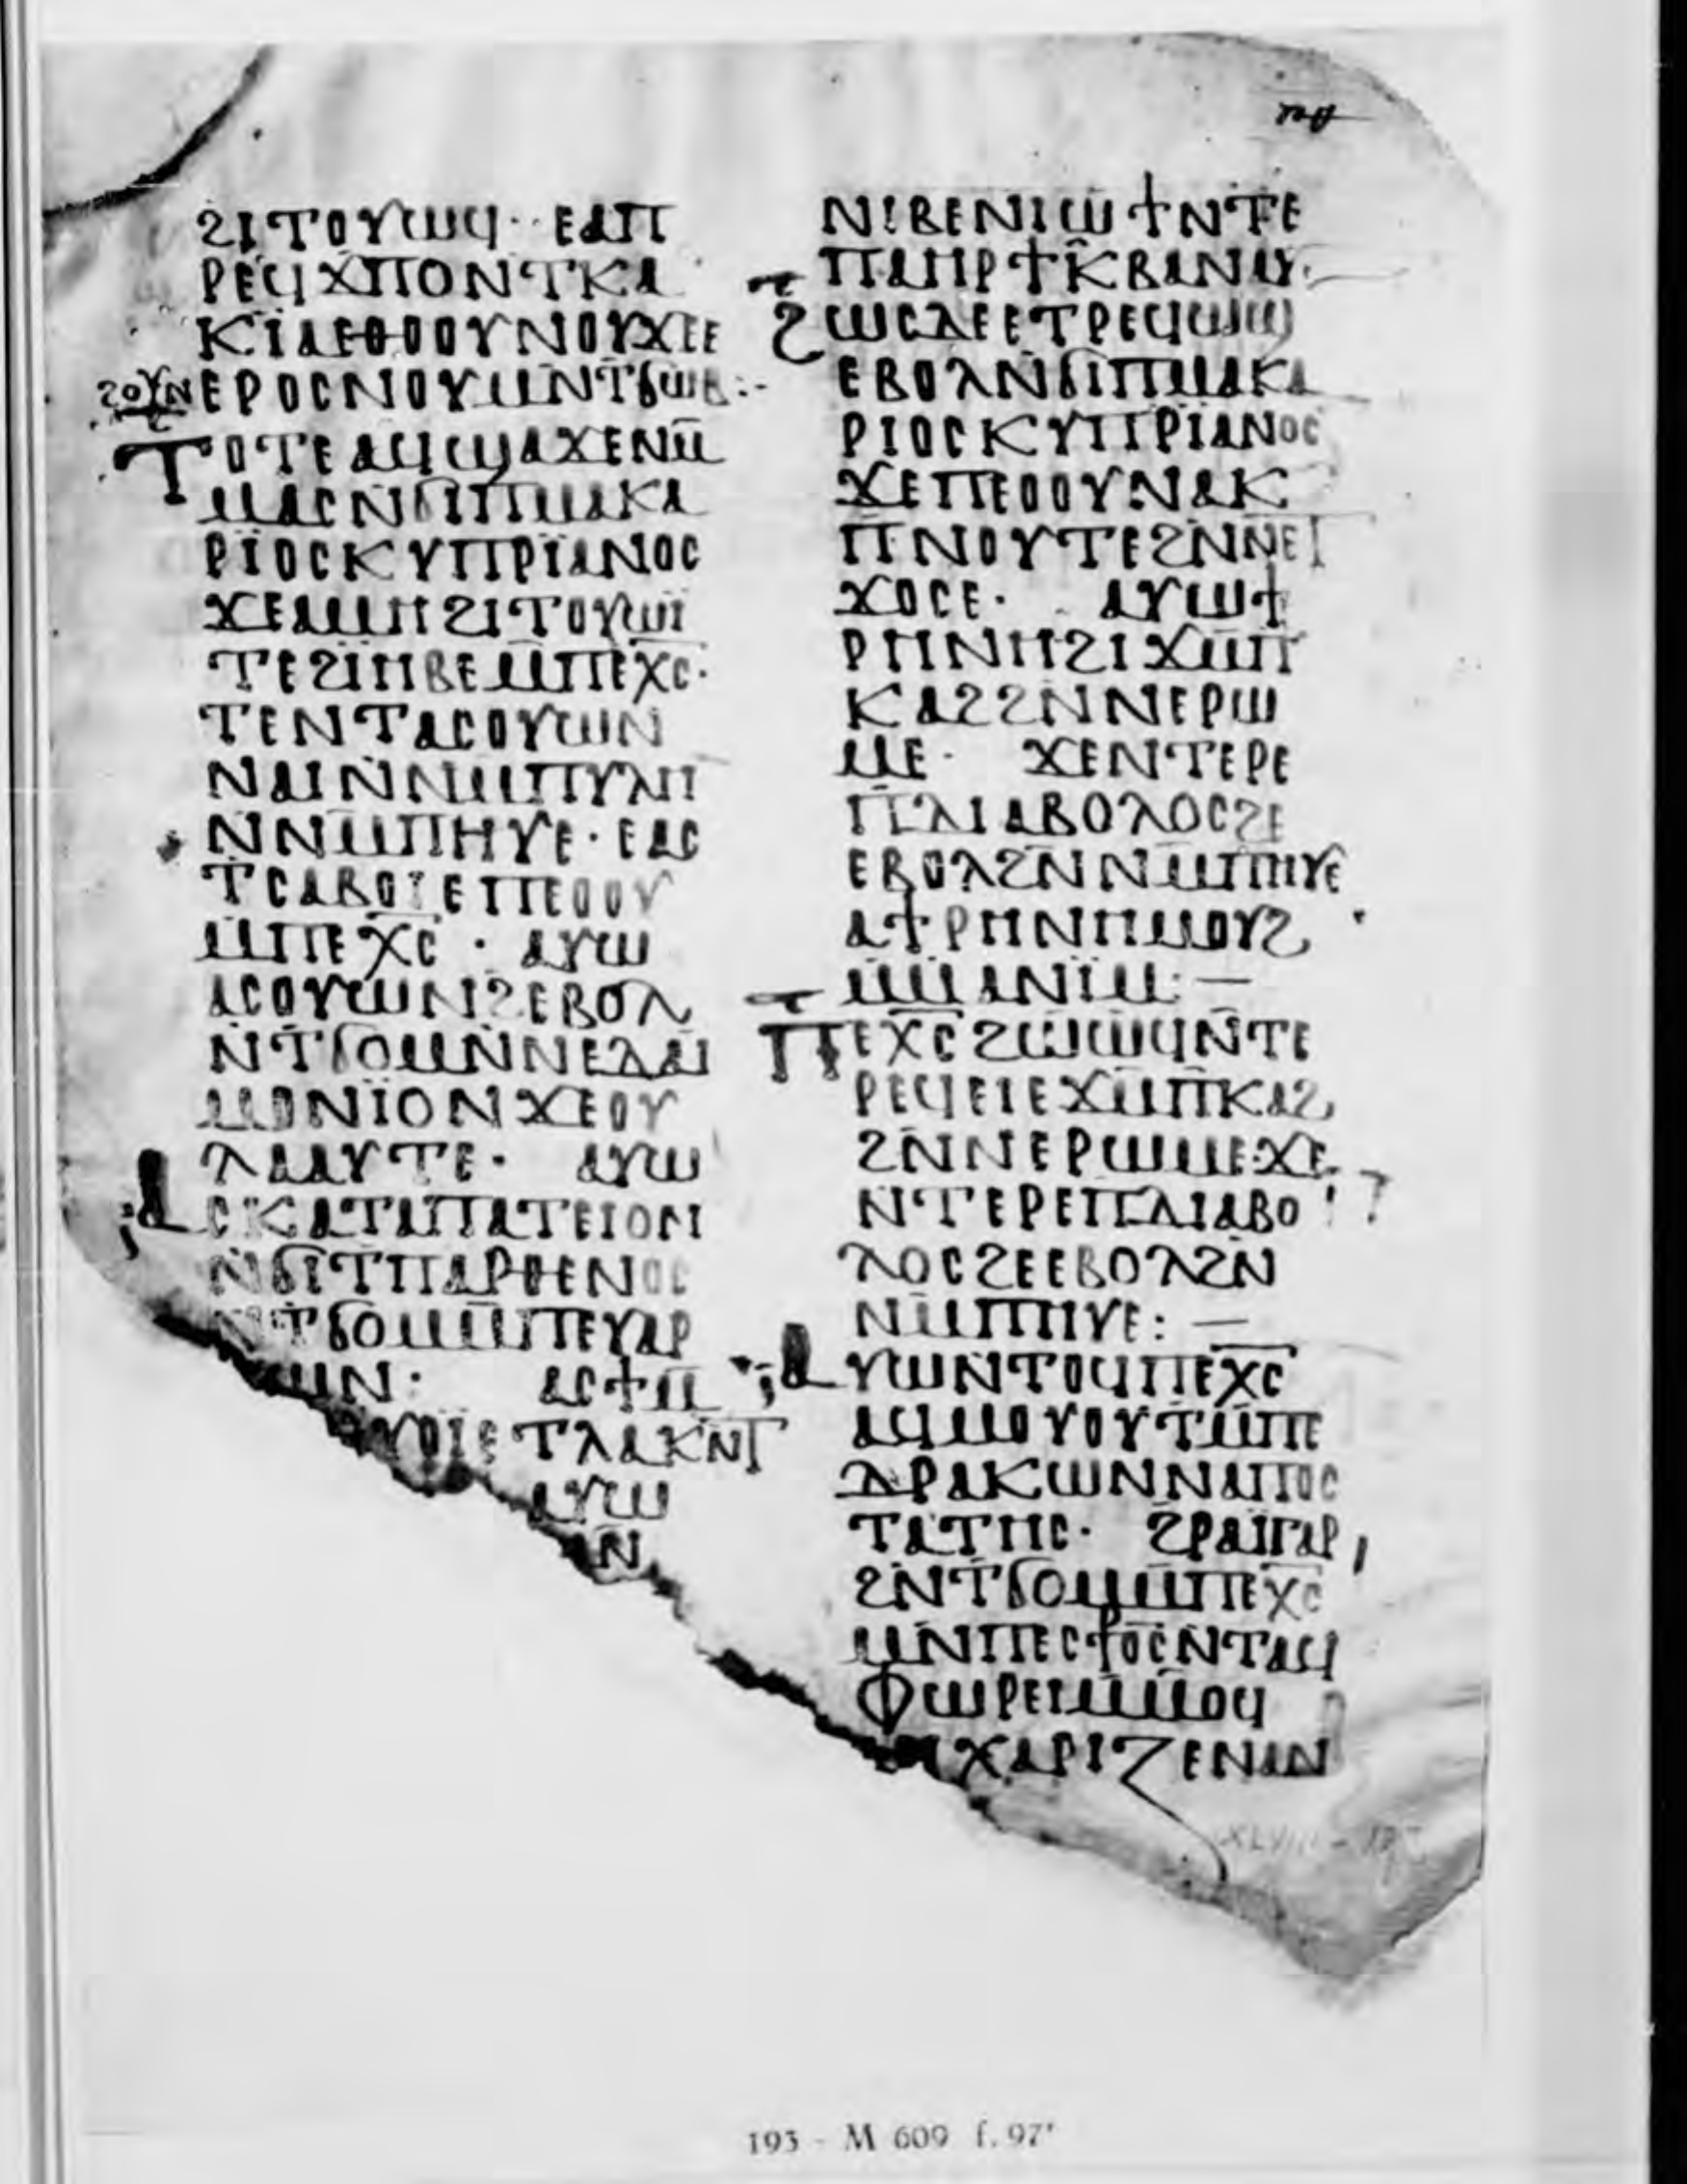 ϩⲓⲧⲟⲩⲱϥ·· ⲉⲁⲡ
ⲣⲉϥϫⲡⲟⲛⲧⲕⲁ
ⲕⲓⲁⲉⲑⲟⲟⲩⲛⲟⲩϫⲉⲉ
ϩⲟⲩⲛ
ⲉⲣⲟⲥⲛⲟⲩⲙⲛⲧϭⲱⲃ:-
ⲧⲟⲧⲉⲁϥϣⲁϫⲉⲛⲙ̄
ⲙⲁⲥⲛϭⲓⲡⲙⲁⲕⲁ
ⲣⲓⲟⲥⲕⲩⲡⲣⲓⲁⲛⲟⲥ
ϫⲉⲁⲙⲏϩⲓⲧⲟⲩⲱⲓ̈
ⲧⲉϩⲓⲏⲃⲉⲙⲡⲉⲭ̅ⲥ̅·
ⲧⲉⲛⲧⲁⲥⲟⲩⲱⲛ
ⲛⲁⲓⲛ̄ⲛⲙⲡⲩⲗⲏ
ⲛⲛⲙⲡⲏⲩⲉ· ⲉⲁⲥ
ⲧⲥⲁⲃⲟⲓ̈ⲉⲡⲉⲟⲟⲩ
ⲙⲡⲉⲭ̅ⲥ̅ · ⲁⲩⲱ
ⲁⲥⲟⲩⲱⲛϩⲉⲃⲟⲗ
ⲛⲧϭⲟⲙⲛ̄ⲛⲉⲇⲁⲓ
ⲙⲟⲛⲓ̈ⲟⲛϫⲉⲟⲩ
ⲗⲁⲁⲩⲧⲉ· ⲁⲩⲱ
ⲁⲥⲕⲁⲧⲁⲡⲁⲧⲉⲓⲟⲛ
ⲛϭⲓⲧⲡⲁⲣⲑⲉⲛⲟⲥ
ⲛⲧϭⲟⲙⲙ̄ⲡⲉⲩⲁⲣ
ⲭⲱⲛ· ⲁⲥϯⲙ̄
ⲙⲟⲓⲉⲧⲗⲁⲕⲛⲧ
ⲁⲩⲱ
ⲛ̄
ⲛⲓⲃⲉⲛⲓⲱϯⲛⲧⲉ
ⲡⲁⲏⲣϯⲕ̂ⲃⲁⲛⲁⲩ·
ϩⲱⲥⲇⲉⲉⲧⲣⲉϥⲱϣ
ⲉⲃⲟⲗⲛ̄ϭⲓⲡⲙⲁⲕⲁ
ⲣⲓⲟⲥⲕⲩⲡⲣⲓ̈ⲁⲛⲟⲥ
ϫⲉⲡⲉⲟⲟⲩⲛⲁⲕ
ⲡⲛⲟⲩⲧⲉϩⲛⲛⲉⲧ
ϫⲟⲥⲉ· ⲁⲩⲱϯ
ⲣⲏⲛⲏϩⲓϫⲙⲡ
ⲕⲁϩϩⲛⲛⲉⲣⲱ
ⲙⲉ· ϫⲉⲛⲧⲉⲣⲉ
ⲡⲇⲓⲁⲃⲟⲗⲟⲥϩⲉ
ⲉⲃⲟⲗϩⲛⲛⲙⲡⲏⲩⲉ
ⲁϯⲣⲏⲛⲏⲙⲟⲩϩ
ⲙ̄ⲙⲁⲛⲓⲙ: —
ⲡⲉⲭ̅ⲥ̅ϩⲱⲱϥⲛ̄ⲧⲉ
ⲣⲉϥⲉⲓⲉϫⲙⲡⲕⲁϩ
ϩⲛⲛⲉⲣⲱⲙⲉ·ϫⲉ
ⲛⲧⲉⲣⲉⲡⲇⲓⲁⲃⲟ
ⲗⲟⲥϩⲉⲉⲃⲟⲗϩⲛ
ⲛⲙⲡⲏⲩⲉ: —
ⲁⲩⲱⲛⲧⲟϥⲡⲉⲭ̅ⲥ̅
ⲁϥⲙⲟⲩⲟⲩⲧⲙⲡⲉ
ⲇⲣⲁⲕⲱⲛⲛⲁⲡⲟⲥ
ⲧⲁⲧⲏⲥ· ϩⲣⲁⲓⲅⲁⲣ
ϩⲛⲧϭⲟⲙⲙⲡⲉⲭ̅ⲥ̅
ⲙⲛⲡⲉⲥ⳨ⲟⲥⲛⲧⲁϥ
ⲫⲱⲣⲉⲓⲙⲙⲟϥ
ⲭⲁⲣⲓⲍⲉⲛⲁⲛ
193 - M 609 f. 97ʳ